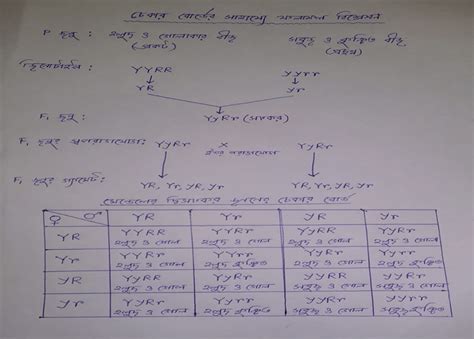 চেকার বোর্ডের সাহায্যে ফলাফল বিশ্লেষণ
P জনু : হলুদ ও গোলাকার বীজ সবুজ ও কুঞ্চিত বীজ
(প্রকট) (প্রচ্ছন্ন)
জিনোটাইপ : YYRR yyrr
YR yr
F₁ জনু : YyRr (সংকর)
F₁ জনুর YyRr × YyRr
F₁ জনুর গ্যামেট : YR, Yr, yR, yr YR, Yr, yR, yr
মেন্ডেলের দ্বিসংকর জননের চেকার বোর্ড
♀ ♂ YR Yr yR yr
YR YYRR YYRr YyRR YyRr
হলুদ ও গোল হলুদ ও গোল হলুদ ও গোল হলুদ ও গোল
Yr YYRr YYrr YyRr Yyrr
হলুদ ও গোল হলুদ কুঞ্চিত হলুদ ও গোল হলুদ কুঞ্চিত
yR YyRR YyRr yyRR yyRr
হলুদ ও গোল হলুদ ও গোল সবুজ ও গোল সবুজ ও গোল
yr YyRr Yyrr yyRr yyrr
হলুদ ও গোল হলুদ ও কুঞ্চিত সবুজ ও গোল সবুজ ও কুঞ্চিত